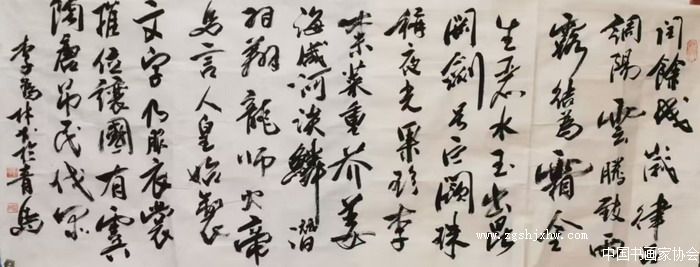 闰餘成歲律吕
調陽雲騰致雨
露結為霜金
生麗水玉出崑
岡劍号巨闕珠
稱夜光果珍李
柰菜重芥姜
海咸河淡鱗潜
羽翔龍師火帝
鸟官人皇始製
文字乃服衣裳
推位讓國有虞
陶唐吊民伐罪
李林书於青岛
www.zgshjxhw.com
中国书画家协会